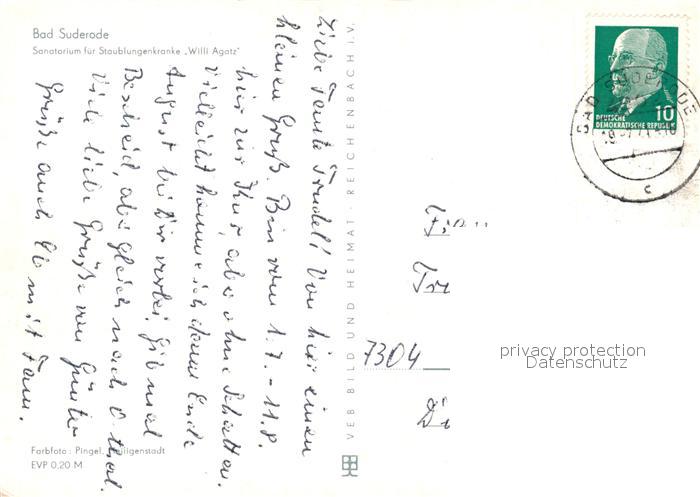 Bad Suderode
Sanatorium für Staublungenkranke „Willi Agatz"
Liebe Tante Trudel! Von hier einen
kleinen Gruß. Bin vom 1.7. - 11.8.
hier zur Kur, aber ohne Schatten.
Vielleicht komme ich dann Ende
August bei Dir vorbei. Gib mal
Bescheid, ob gleich nach O. thal.
Viele liebe Grüße von Günter
Grüße auch mit Fam.
VEB BILD UND HEIMAT · REICHENBACH i.V.
Farbfoto: Pingel, Heiligenstadt
EVP 0,20 M
10
DEUTSCHE
DEMOKRATISCHE REPUBLIK
BAD SUDERODE
c
7304
privacy protection
Datenschutz